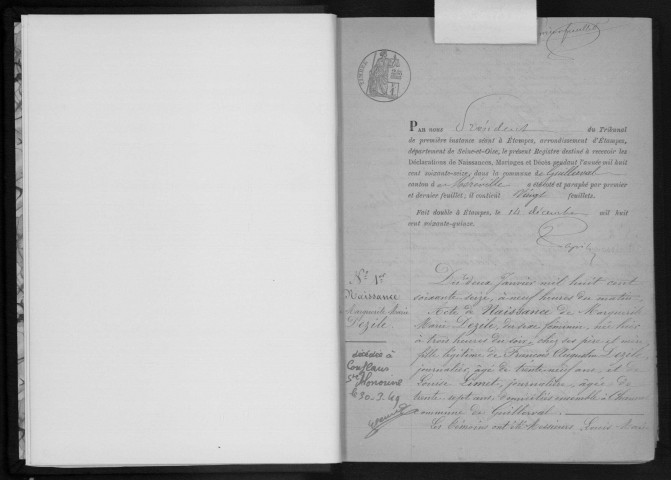 TIMBRE
PAR NOUS Président du Tribunal
de première instance séant à Étampes, arrondissement d'Étampes,
département de Seine-et-Oise, le présent Registre destiné à recevoir les
Déclarations de Naissances, Mariages et Décès pendant l'année mil huit
cent soixante-seize, dans la commune de Guillerval
canton de Méréville a été coté et paraphé par premier
et dernier feuillet, il contient Vingt feuillets.
Fait double à Étampes, le 14 décembre mil huit
cent soixante-quinze.
N° 1er
Naissance
Marguerite Marie
Dezile
décédée à
Conflans
Ste Honorine
le 30.9.49
Du deux Janvier mil huit cent
soixante seize, à neuf heures du matin
Acte de Naissance de Marguerite
Marie Dezile, du sexe féminin, née hier
à trois heures du soir, chez ses père et mère
fille légitime de François Augustin Dezile,
journalier, âgé de trente neuf ans, et de
Louise Limet, journalière, âgée de
trente sept ans, domiciliés ensemble à
commune de Guillerval.
Les témoins ont été Messieurs Louis